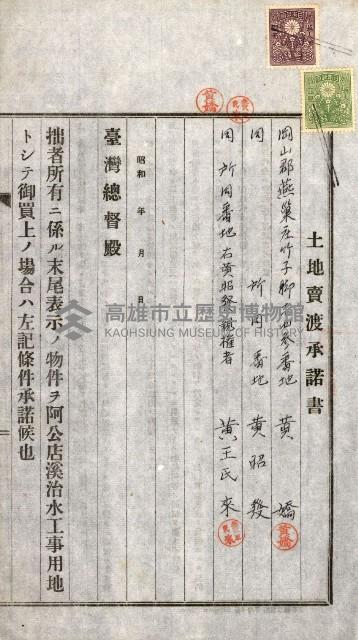 土地賣渡承諾書
岡山郡燕巢庄竹子脚 番地 黃 嬌
同 所同番地 黃昭發
同 所同番地右黃昭發親權者 黃王氏來
昭和 年 月 日
臺灣總督殿
拙者所有ニ係ル末尾表示ノ物件ヲ阿公店溪治水工事用地
トシテ御買上ノ場合ハ左記條件承諾候也
高雄市立歷史博物館
KAOHSIUNG MUSEUM OF HISTORY
黃嬌